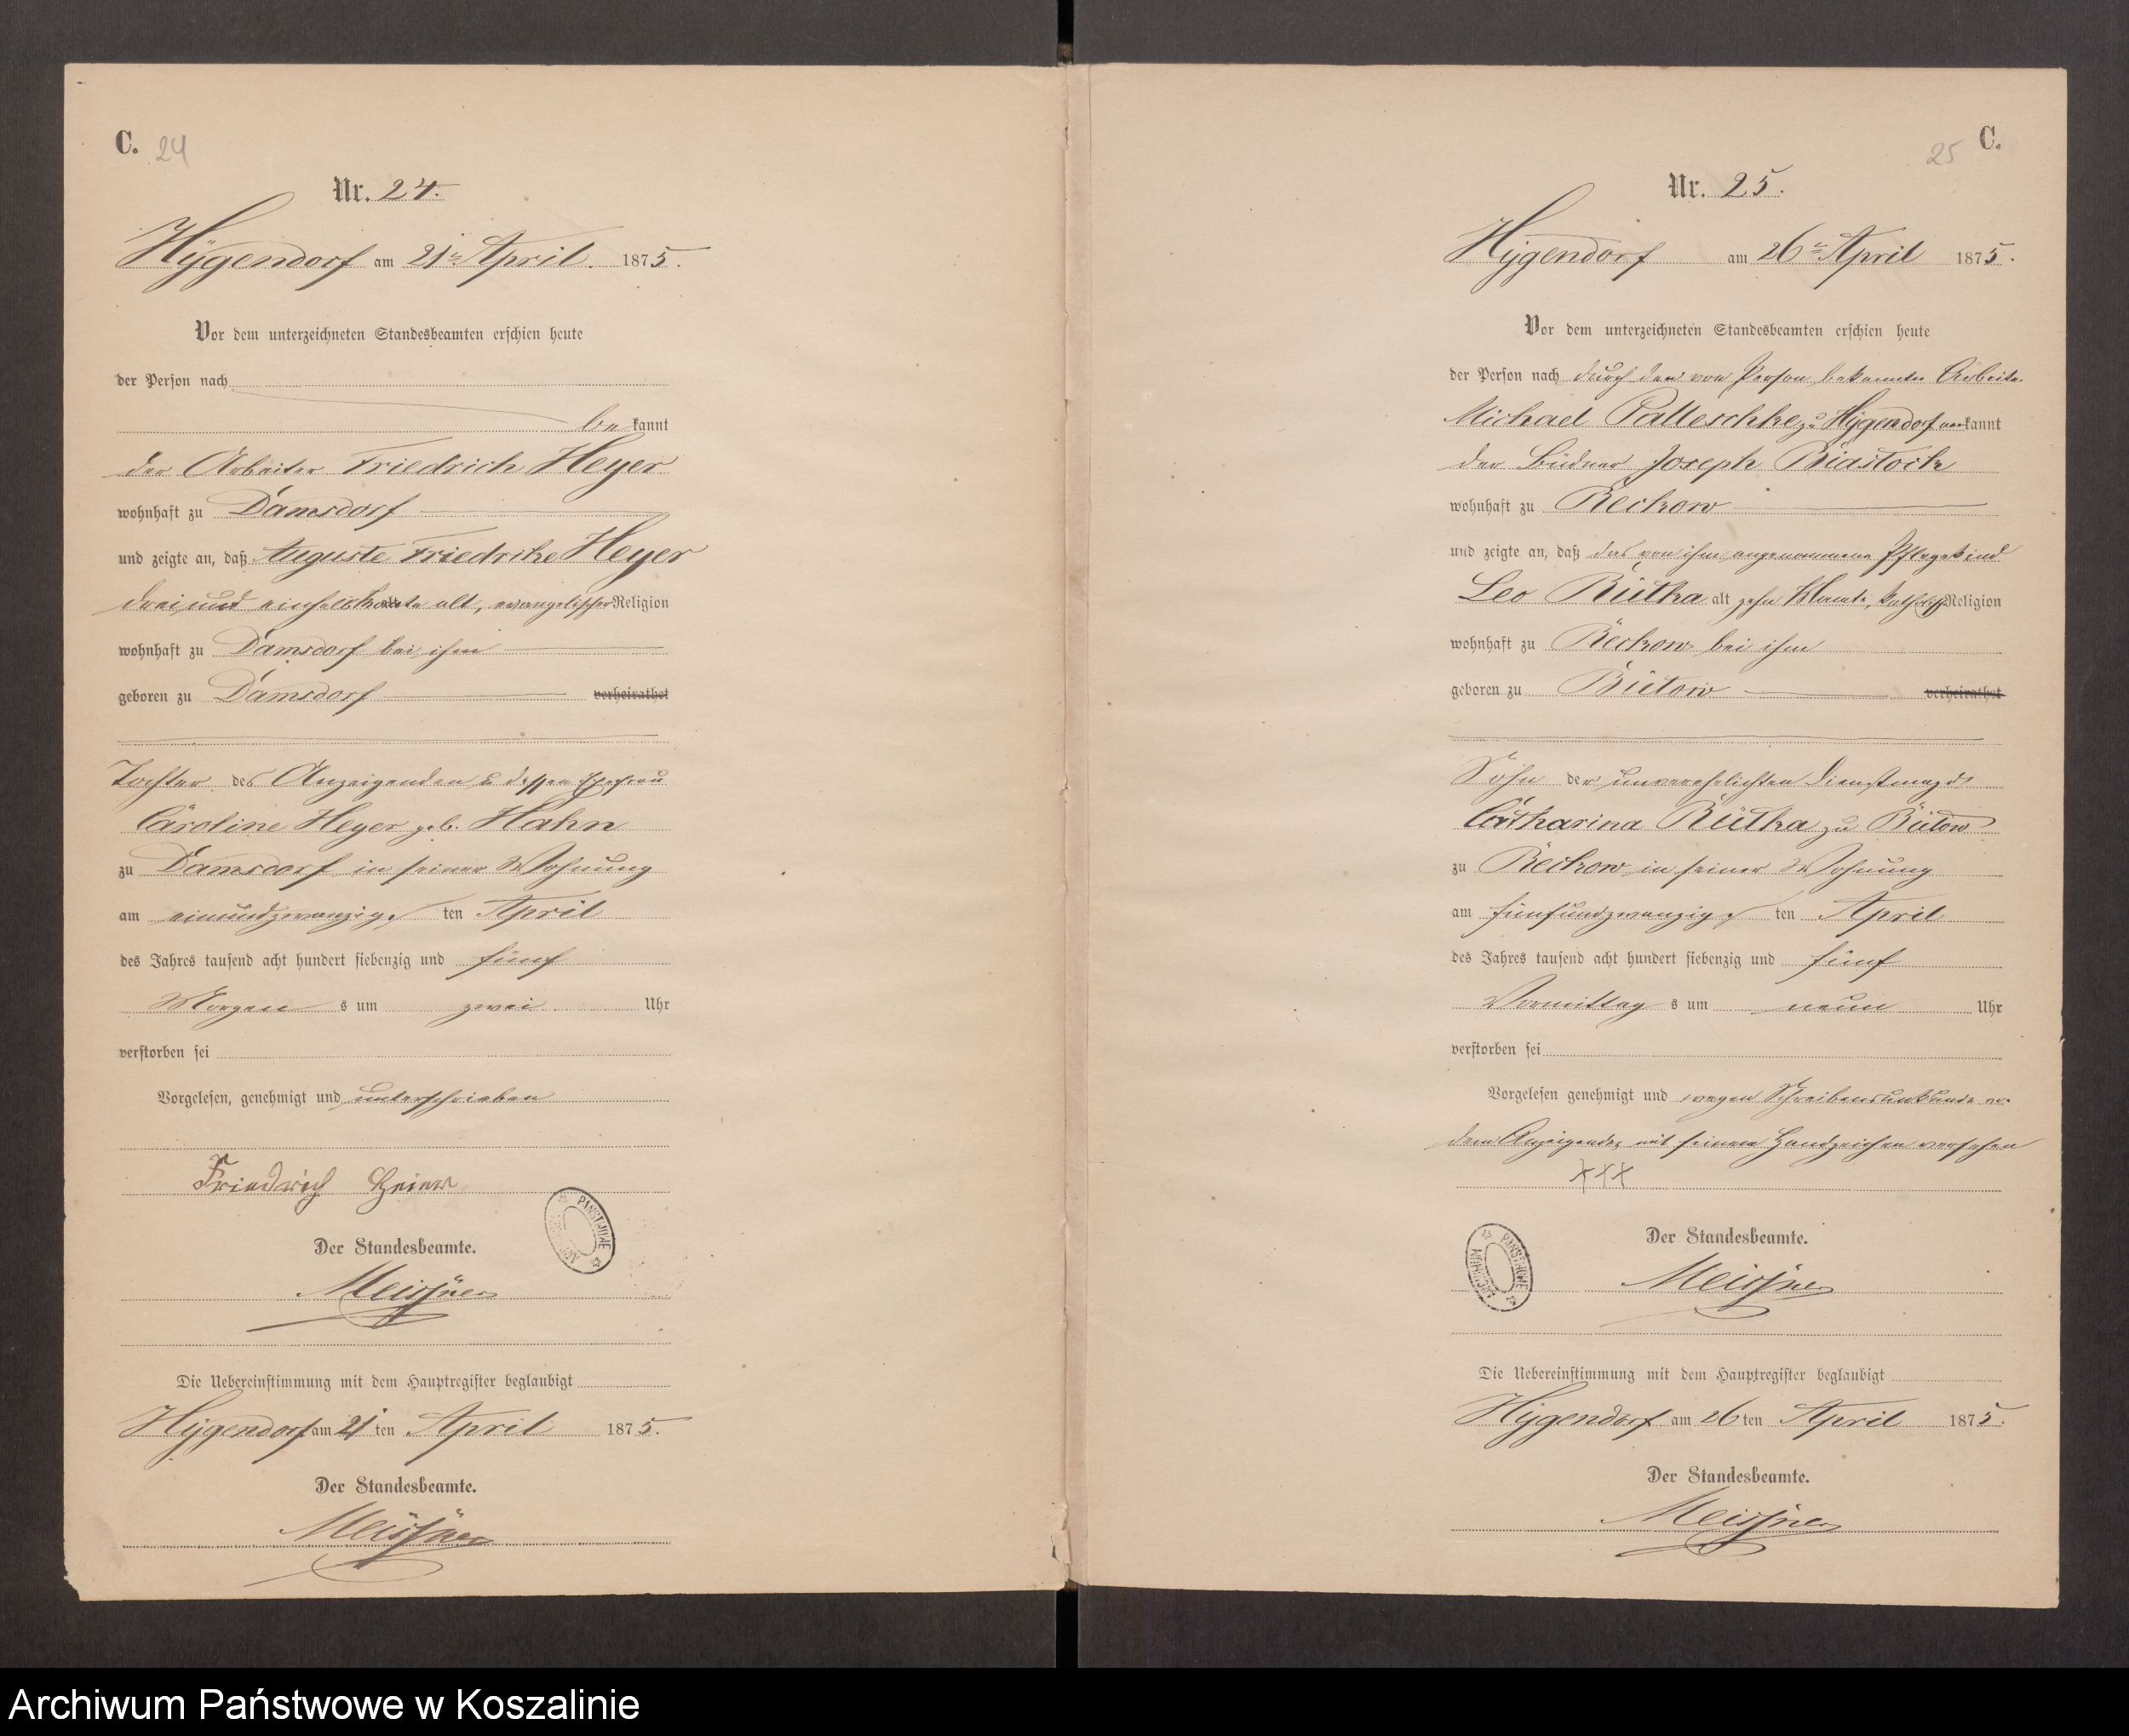 C. 24
Nr. 24.
Hÿgendorf am 21ten April. 1875.
Vor dem unterzeichneten Standesbeamten erschien heute
der Person nach
be kannt
der Arbeiter Friedrich Heyer
wohnhaft zu Damsdorf
und zeigte an, daß Auguste Friedrike Heyer
drei und einhalb alt, evangelischer Religion
wohnhaft zu Damsdorf bei ihm
geboren zu Damsdorf verheirathet
Tochter des Anzeigenden u dessen Ehefrau
Caroline Heyer geb. Hahn
zu Damsdorf in seiner Wohnung
am einundzwanzigs ten April
des Jahres tausend acht hundert siebenzig und fünf
Morgen s um zwei Uhr
verstorben sei
Vorgelesen, genehmigt und unterschrieben
Friedrich Heier
Der Standesbeamte.
Meissner
Die Uebereinstimmung mit dem Hauptregister beglaubigt
Hÿgendorf am 21 ten April 1875.
Der Standesbeamte.
Meissner
25 C.
Nr. 25.
Hÿgendorf am 26ten April 1875.
Vor dem unterzeichneten Standesbeamten erschien heute
der Person nach durch den von Person bekannten Arbeiter
Michael Palleschke zu Hÿgendorf anerkannt
der Büdner Joseph Biastock
wohnhaft zu Reckow
und zeigte an, daß das von ihm angenommene Pflegekind
Leo Rütha alt zehn Monate, katholisch Religion
wohnhaft zu Reckow bei ihm
geboren zu Bütow verheirathet
Sohn der unverehelichten Dienstmagd
Catharina Rütha zu Bütow
zu Reckow in seiner Wohnung
am fünfundzwanzigs ten April
des Jahres tausend acht hundert siebenzig und fünf
Vormittag s um neun Uhr
verstorben sei
Vorgelesen genehmigt und wegen Schreibensunkunde von
dem Anzeigenden mit seinem Handzeichen versehen
+++
Der Standesbeamte.
Meissner
Die Uebereinstimmung mit dem Hauptregister beglaubigt
Hÿgendorf am 26 ten April 1875.
Der Standesbeamte.
Meissner
ARCHIWUM PAŃSTWOWE
Archiwum Państwowe w Koszalinie